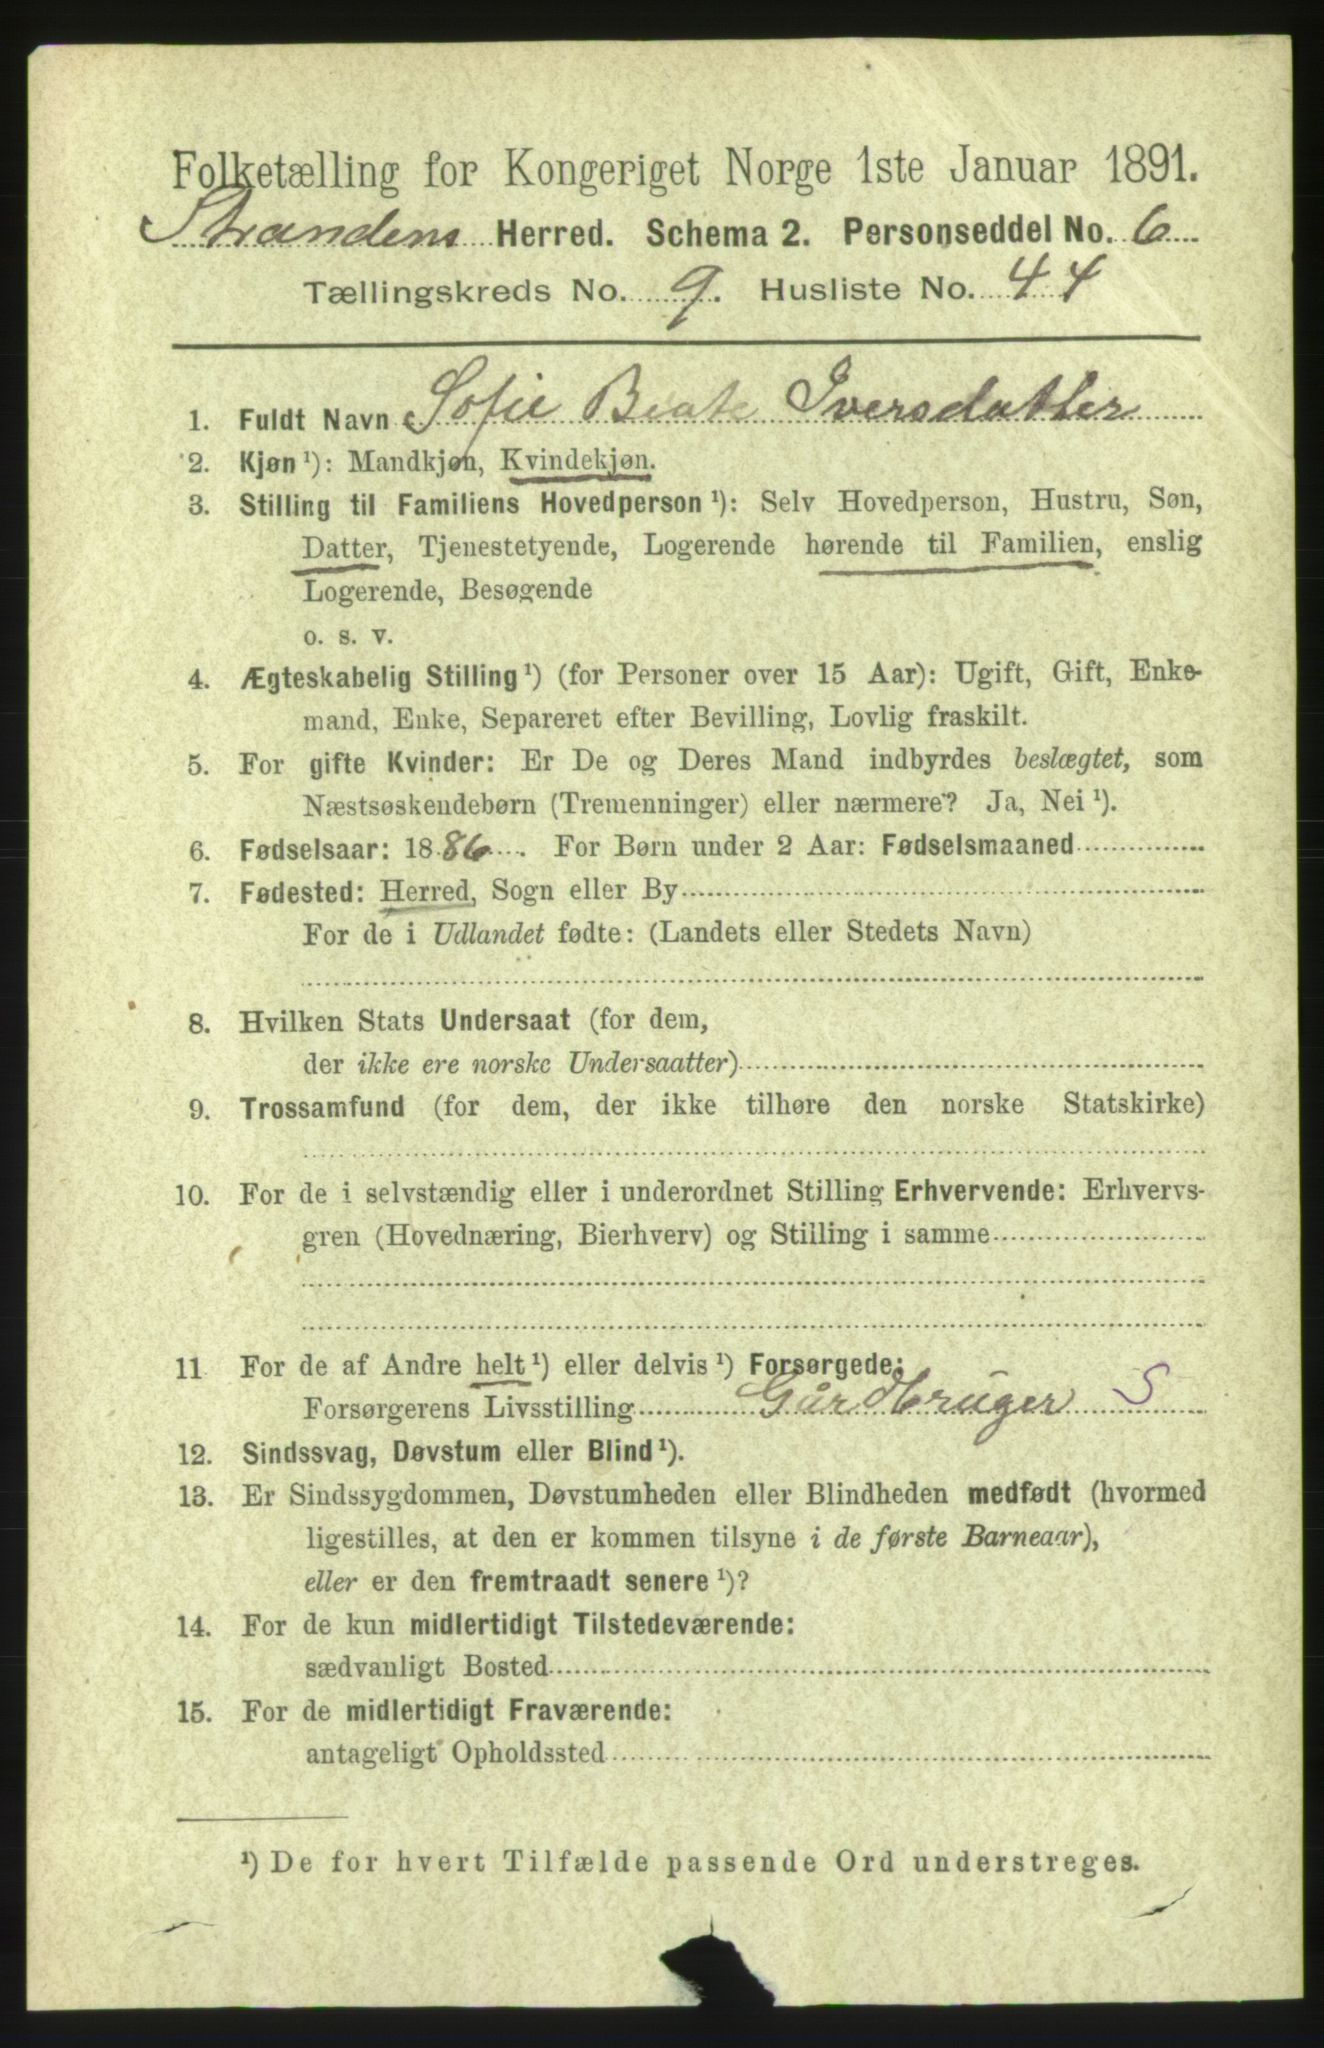 Folketælling for Kongeriget Norge 1ste Januar 1891.
Strandens Herred. Schema 2. Personseddel No. 6
Tællingskreds No. 9. Husliste No. 44
1. Fuldt Navn Sofie Beate Iversdatter
2. Kjøn ¹): Mandkjøn, Kvindekjøn.
3. Stilling til Familiens Hovedperson ¹): Selv Hovedperson, Hustru, Søn,
Datter, Tjenestetyende, Logerende hørende til Familien, enslig
Logerende, Besøgende
o. s. v.
4. Ægteskabelig Stilling ¹) (for Personer over 15 Aar): Ugift, Gift, Enke-
mand, Enke, Separeret efter Bevilling, Lovlig fraskilt.
5. For gifte Kvinder: Er De og Deres Mand indbyrdes beslægtet, som
Næstsøskendebørn (Tremenninger) eller nærmere? Ja, Nei ¹).
6. Fødselsaar: 1886. For Børn under 2 Aar: Fødselsmaaned
7. Fødested: Herred, Sogn eller By
For de i Udlandet fødte: (Landets eller Stedets Navn)
8. Hvilken Stats Undersaat (for dem,
der ikke ere norske Undersaatter)
9. Trossamfund (for dem, der ikke tilhøre den norske Statskirke)
10. For de i selvstændig eller i underordnet Stilling Erhvervende: Erhvervs-
gren (Hovednæring, Bierhverv) og Stilling i samme
11 For de af Andre helt ¹) eller delvis ¹) Forsørgede:
Forsørgerens Livsstilling Gårdbruger S
12. Sindssvag, Døvstum eller Blind ¹).
13. Er Sindssygdommen, Døvstumheden eller Blindheden medfødt (hvormed
ligestilles, at den er kommen tilsyne i de første Barneaar),
eller er den fremtraadt senere ¹)?
14. For de kun midlertidigt Tilstedeværende:
sædvanligt Bosted
15. For de midlertidigt Fraværende:
antageligt Opholdssted
¹) De for hvert Tilfælde passende Ord understreges.